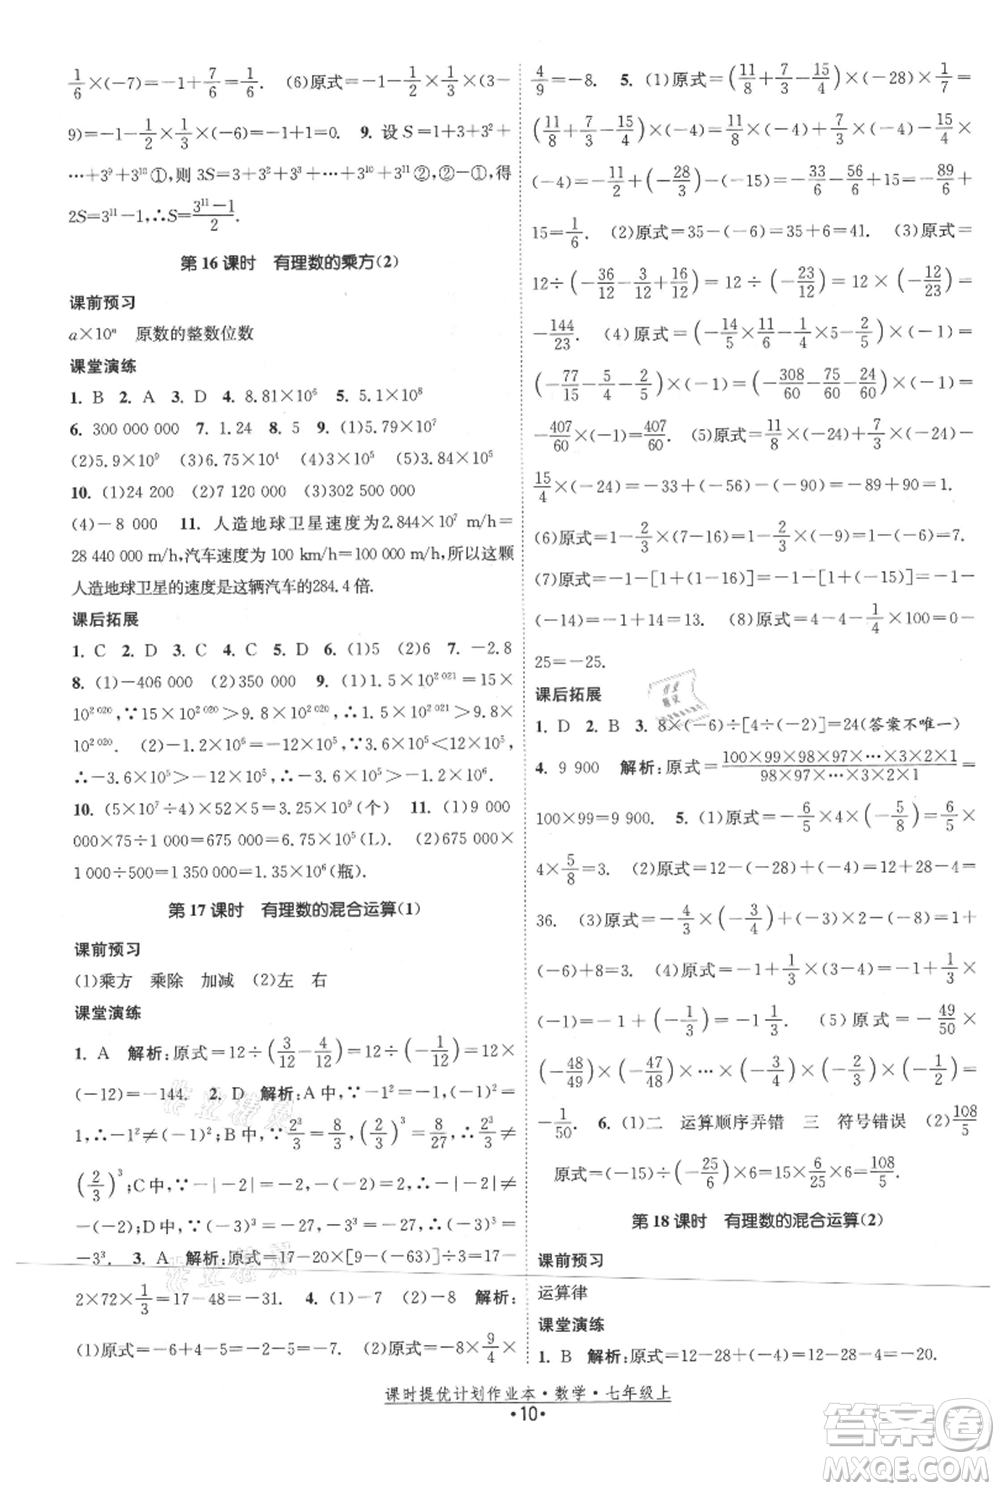 1/6×(-7)=-1+7/6=1/6. (6)原式=-1-1/2×1/3×(3-
9)=-1-1/2×1/3×(-6)=-1+1=0. 9. 设 S=1+3+3²+
…+3⁹+3¹⁰①,则 3S=3+3²+3³+…+3¹⁰+3¹¹②,②-①,得
2S=3¹¹-1,∴S=(3¹¹-1)/2.
第 16 课时 有理数的乘方(2)
课前预习
a×10ⁿ 原数的整数位数
课堂演练
1. B 2. A 3. D 4. 8.81×10⁶ 5. 1.5×10⁸
6. 300 000 000 7. 1.24 8. 5 9. (1)5.79×10⁷
(2)5.9×10⁹ (3)6.75×10⁴ (4)-3.75×10⁷
10. (1)24 200 (2)7 120 000 (3)10 000 000
(4)-8 000 11. 人造地球卫星速度为2.844×10⁷ m/h=
28 440 000 m/h,汽车速度为100 km/h=100 000 m/h,所以这颗
人造地球卫星的速度是这辆汽车的284.4 倍.
课后拓展
1. C 2. D 3. C 4. C 5. A 6. (1)5 (2)4 7. -2.8
8. (1)-406 000 (2)350 000 9. (1)1.5×10²⁰²¹=15×
10²⁰²⁰,∵15×10²⁰²⁰>9.8×10²⁰²⁰,∴1.5×10²⁰²¹>9.8×
10²⁰²⁰. (2)-1.2×10⁶=-12×10⁵,∵-3.6×10⁵>-12×10⁵,
∴-3.6×10⁵>-1.2×10⁶.
10. (5×10⁷÷4)×52×5=3.25×10⁹(个) 11. (1)9 000
000×75÷1 000=675 000=6.75×10⁵(L). (2)675 000×
1 000÷500=1 350 000=1.35×10⁶(瓶).
第 17 课时 有理数的混合运算(1)
课前预习
(1)乘方 乘除 加减 (2)左 右
课堂演练
1. A 解析:原式=12÷(3/12-4/12)=12÷(-1/12)=12×
(-12)=-144. 2. D 解析:A 中,∵-1²=-1,(-1)²=
1,∴-1²≠(-1)²;B 中,∵2³/3=8/3,(2/3)³=8/27,∴2³/3≠
(2/3)³;C 中,∵-|-2|=-2,-(-2)=2,∴-|-2|≠
-(-2);D 中,∵(-3)³=-27,-3³=-27,∴(-3)³=
-3³. 3. B 解析:原式=17-20×[9-(-63)÷7]=17-
2×72÷3=17-48=-31. 4. (1)-7 (2)-8 解析:
(1)原式=-6+4-5=-2-5=-7. (2)原式=-8×9/4×
4/9=-8. 5. (1)原式=(11/8+7/3-15/4)×(-28)×1/7=
(11/8+7/3-15/4)×(-4)=11/8×(-4)+7/3×(-4)-15/4×
(-4)=-11/2+(-28/3)-(-15)=-33/6-56/6+15=-89/6+
15=1/6. (2)原式=35-(-6)=35+6=41. (3)原式=
12÷(-36/12-3/12+16/12)=12÷(-23/12)=12×(-12/23)=
-144/23. (4)原式=(-7/5×11/3-5/2×1/2+2/5)×(-1)=
(-77/15-5/4+2/5)×(-1)=(-308/60-75/60+24/60)×(-1)=
-407/60×(-1)=407/60. (5)原式=11/8×(-24)+7/3×(-24)-
15/4×(-24)=-33+(-56)-(-90)=-89+90=1.
(6)原式=1-2/3×(-2)=1-(-4/3)=1+4/3=7/3.
(7)原式=-1-[1+(-1)-14]=-1-[1+(-15)]=
-1+14=13. (8)原式=4-4-1/4×100=0-
25=-25.
课后拓展
1. D 2. B 3. 8×(-6)÷[4÷(-2)]=24(答案不唯一)
4. 9 900 解析:原式=(100×99×98×97×…×3×2×1)/(98×97×…×3×2×1)=
100×99=9 900. 5. (1)原式=6/5×(-4)×(-5/8)=6/5×
4×5/8=3. (2)原式=12-(-4)×(-4)+12+28=
36. (3)原式=1+8÷(-8)-(-6)+2=1+(-1)-
(-6)+8=13. (4)原式=-1+(-1/3)×(2+1/3×
(-1)=-1+(-1/3)=-1 1/3. (5)原式=(-49/50)×
(-48/49)×(-47/48)×…×(-2/3)×(-1/2)=
-1/50. 6. (1)二 运算顺序弄错 三 符号错误 (2)108/5
原式=(-15)÷(-25/6)×6=15×6/25×6=108/5.
第 18 课时 有理数的混合运算(2)
课前预习
运算律
课堂演练
1. B 解析:原式=12-28+(-4)=-20.
课时提优计划作业本·数学·七年级上
·10·
答案圈
MXQE.COM